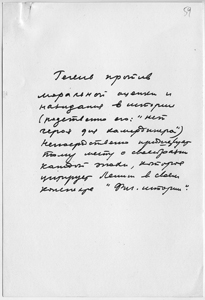 59
Гегель против
моральной оценки и
назидания в истории
(подетально его: "нет
героя для камердинера")
Непосредственно предшествует
тому месту о своеобразии
каждой эпохи, которое
цитирует Ленин в своем
конспекте "Фил. истории".